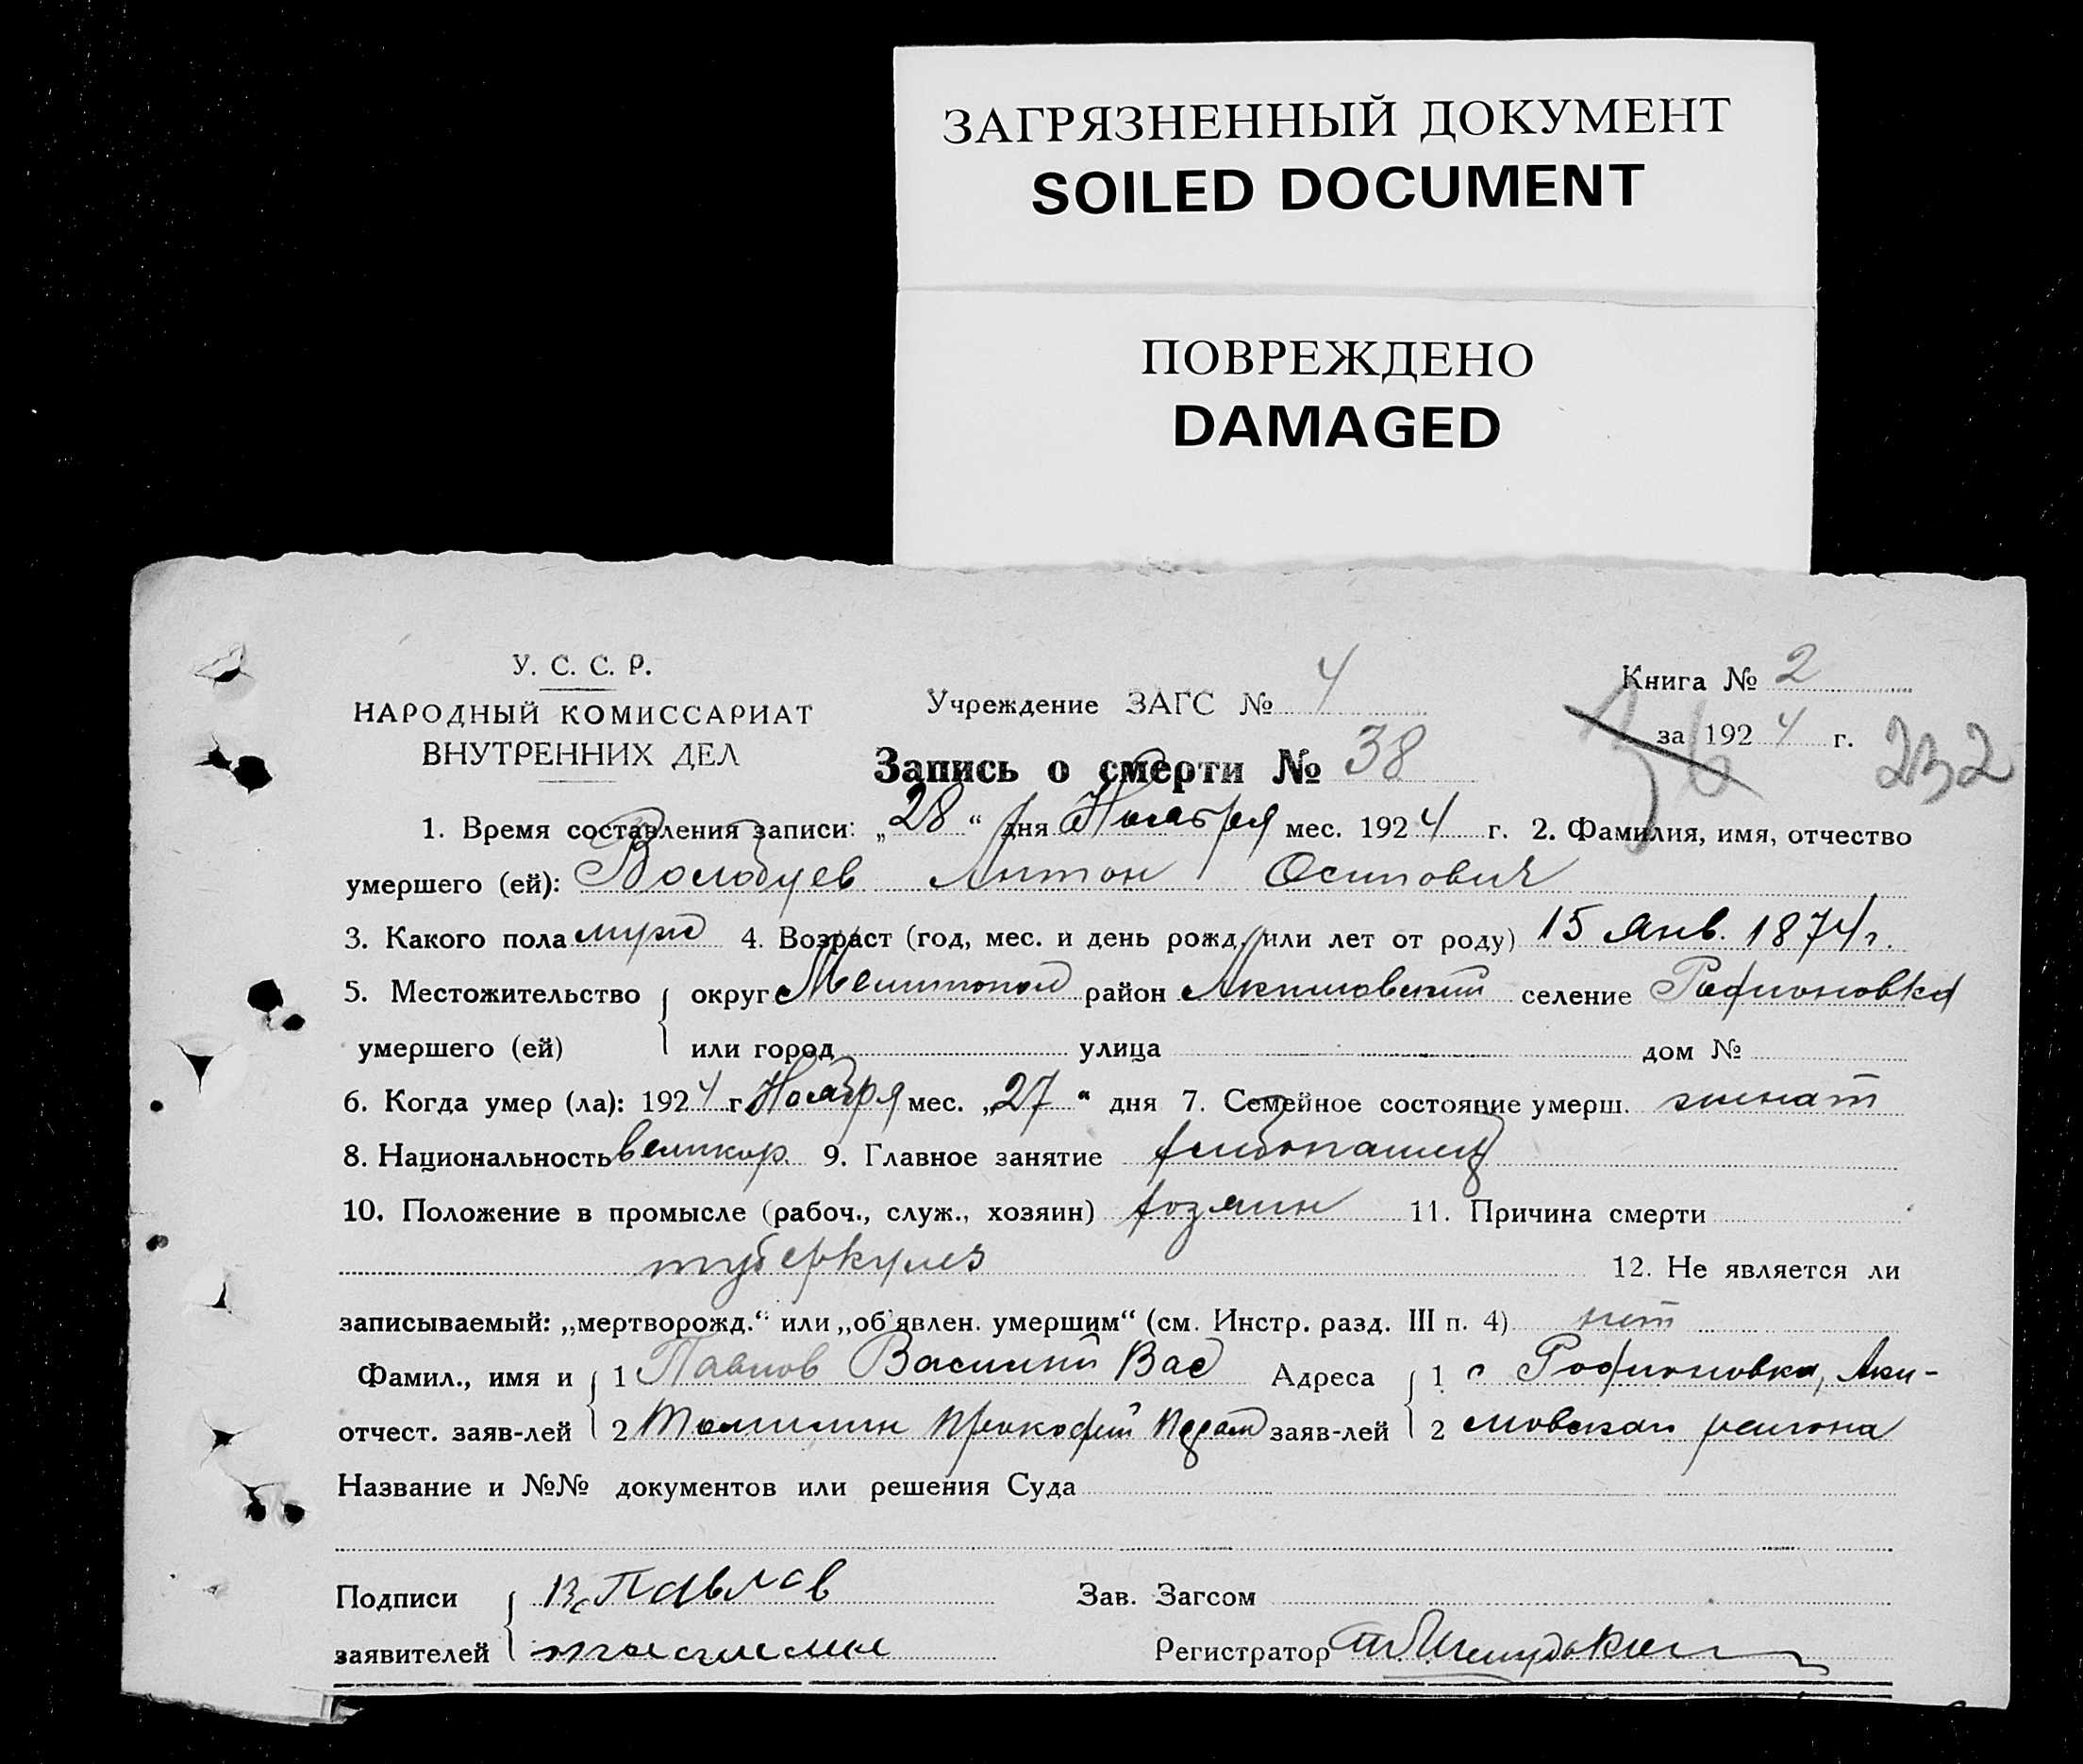 ЗАГРЯЗНЕННЫЙ ДОКУМЕНТ
SOILED DOCUMENT
ПОВРЕЖДЕНО
DAMAGED
У. С. С. Р.
НАРОДНЫЙ КОМИССАРИАТ
ВНУТРЕННИХ ДЕЛ
Учреждение ЗАГС № 4
Книга № 2
за 1924 г.
232
Запись о смерти № 38
1. Время составления записи: „28“ дня Ноября мес. 1924 г. 2. Фамилия, имя, отчество
умершего (ей): Волобуев Антон Осипович
3. Какого пола муж 4. Возраст (год, мес. и день рожд. или лет от роду) 15 янв. 1874 г.
5. Местожительство округ Мелитопол район Акимовский селение Родионовка
умершего (ей) или город улица дом №
6. Когда умер (ла): 1924 г Ноября мес. „27“ дня 7. Семейное состояние умерш. женат
8. Национальность великор. 9. Главное занятие хлебопашец
10. Положение в промысле (рабоч., служ., хозяин) хозяин 11. Причина смерти
туберкулез 12. Не является ли
записываемый: „мертворожд.“ или „об'явлен. умершим“ (см. Инстр. разд. III п. 4) нет
Фамил., имя и 1 Павлов Василий Вас Адреса 1 с Родионовка, Аки-
отчест. заяв-лей 2 Томилин Прокофий заяв-лей 2 мовского района
Название и №№ документов или решения Суда
Подписи В. Павлов Зав. Загсом
заявителей Регистратор